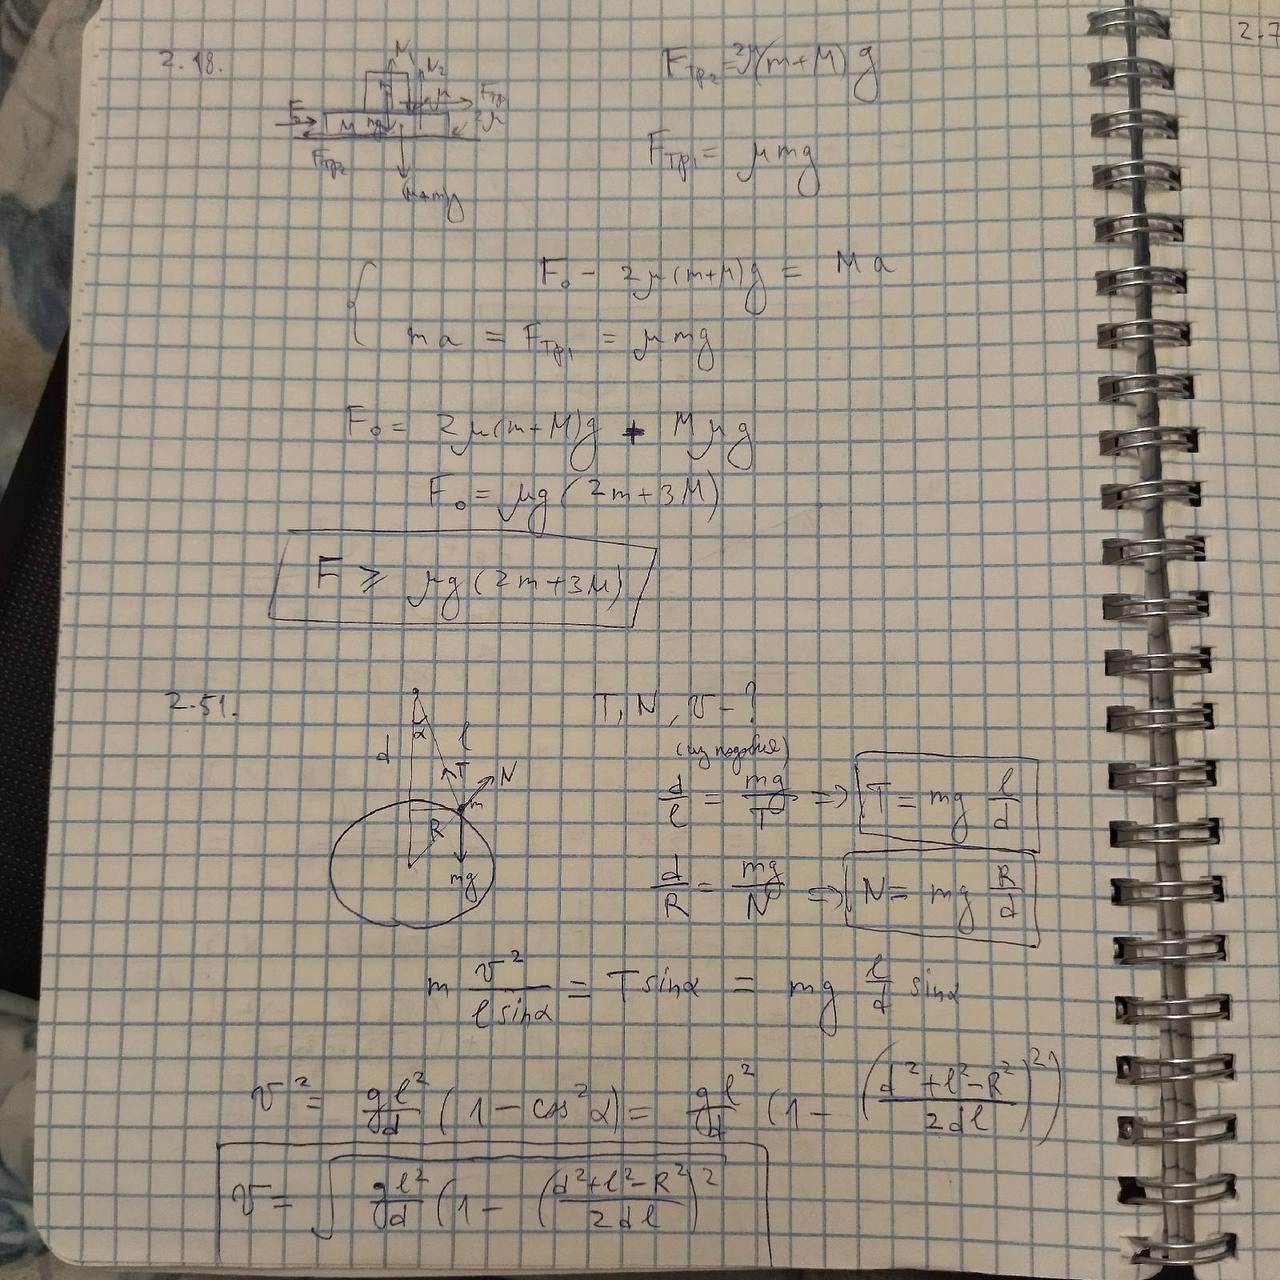 2.7
2.18.
N
N₂
μ
Fтр
F₀
M
mg
2μ
Fтр₂
(M+m)g
Fтр₂ = 2μ(m+M)g
Fтр₁ = μmg
{ F₀ - 2μ(m+M)g = Ma
ma = Fтр₁ = μmg
F₀ = 2μ(m+M)g + Mμg
F₀ = μg(2m+3M)
F ⩾ μg(2m+3M)
2.51.
T, N, v - ?
α
d
l
T
N
m
R
mg
(из подобия)
d/l = mg/T => T = mg l/d
d/R = mg/N => N = mg R/d
m v²/(l sinα) = T sinα = mg l/d sinα
v² = gl²/d (1 - cos²α) = gl²/d (1 - ((d²+l²-R²)/2dl)²)
v = √(gl²/d (1 - ((d²+l²-R²)/2dl)²